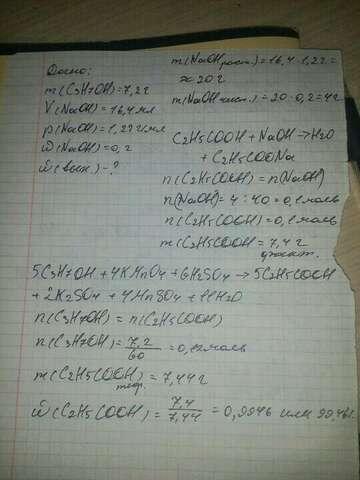 Дано:
m(C3H7OH)=7,2г
V(NaOH)=16,4мл
ρ(NaOH)=1,22г/мл
ω(NaOH)=0,2
ω(вых.)-?
m(NaOH раст.)=16,4·1,22=
≈20г
m(NaOH чист.)=20·0,2=4г
C2H5COOH+NaOH→H2O
+C2H5COONa
n(C2H5COOH)=n(NaOH)
n(NaOH)=4:40=0,1моль
n(C2H5COOH)=0,1моль
m(C2H5COOH)=7,4г
практ.
5C3H7OH+4KMnO4+6H2SO4→5C2H5COOH
+2K2SO4+4MnSO4+11H2O
n(C3H7OH)=n(C2H5COOH)
n(C3H7OH)=7,2/60=0,12моль
m(C2H5COOH)теор.=7,44г
ω(C2H5COOH)=7,4/7,44=0,9946 или 99,46%